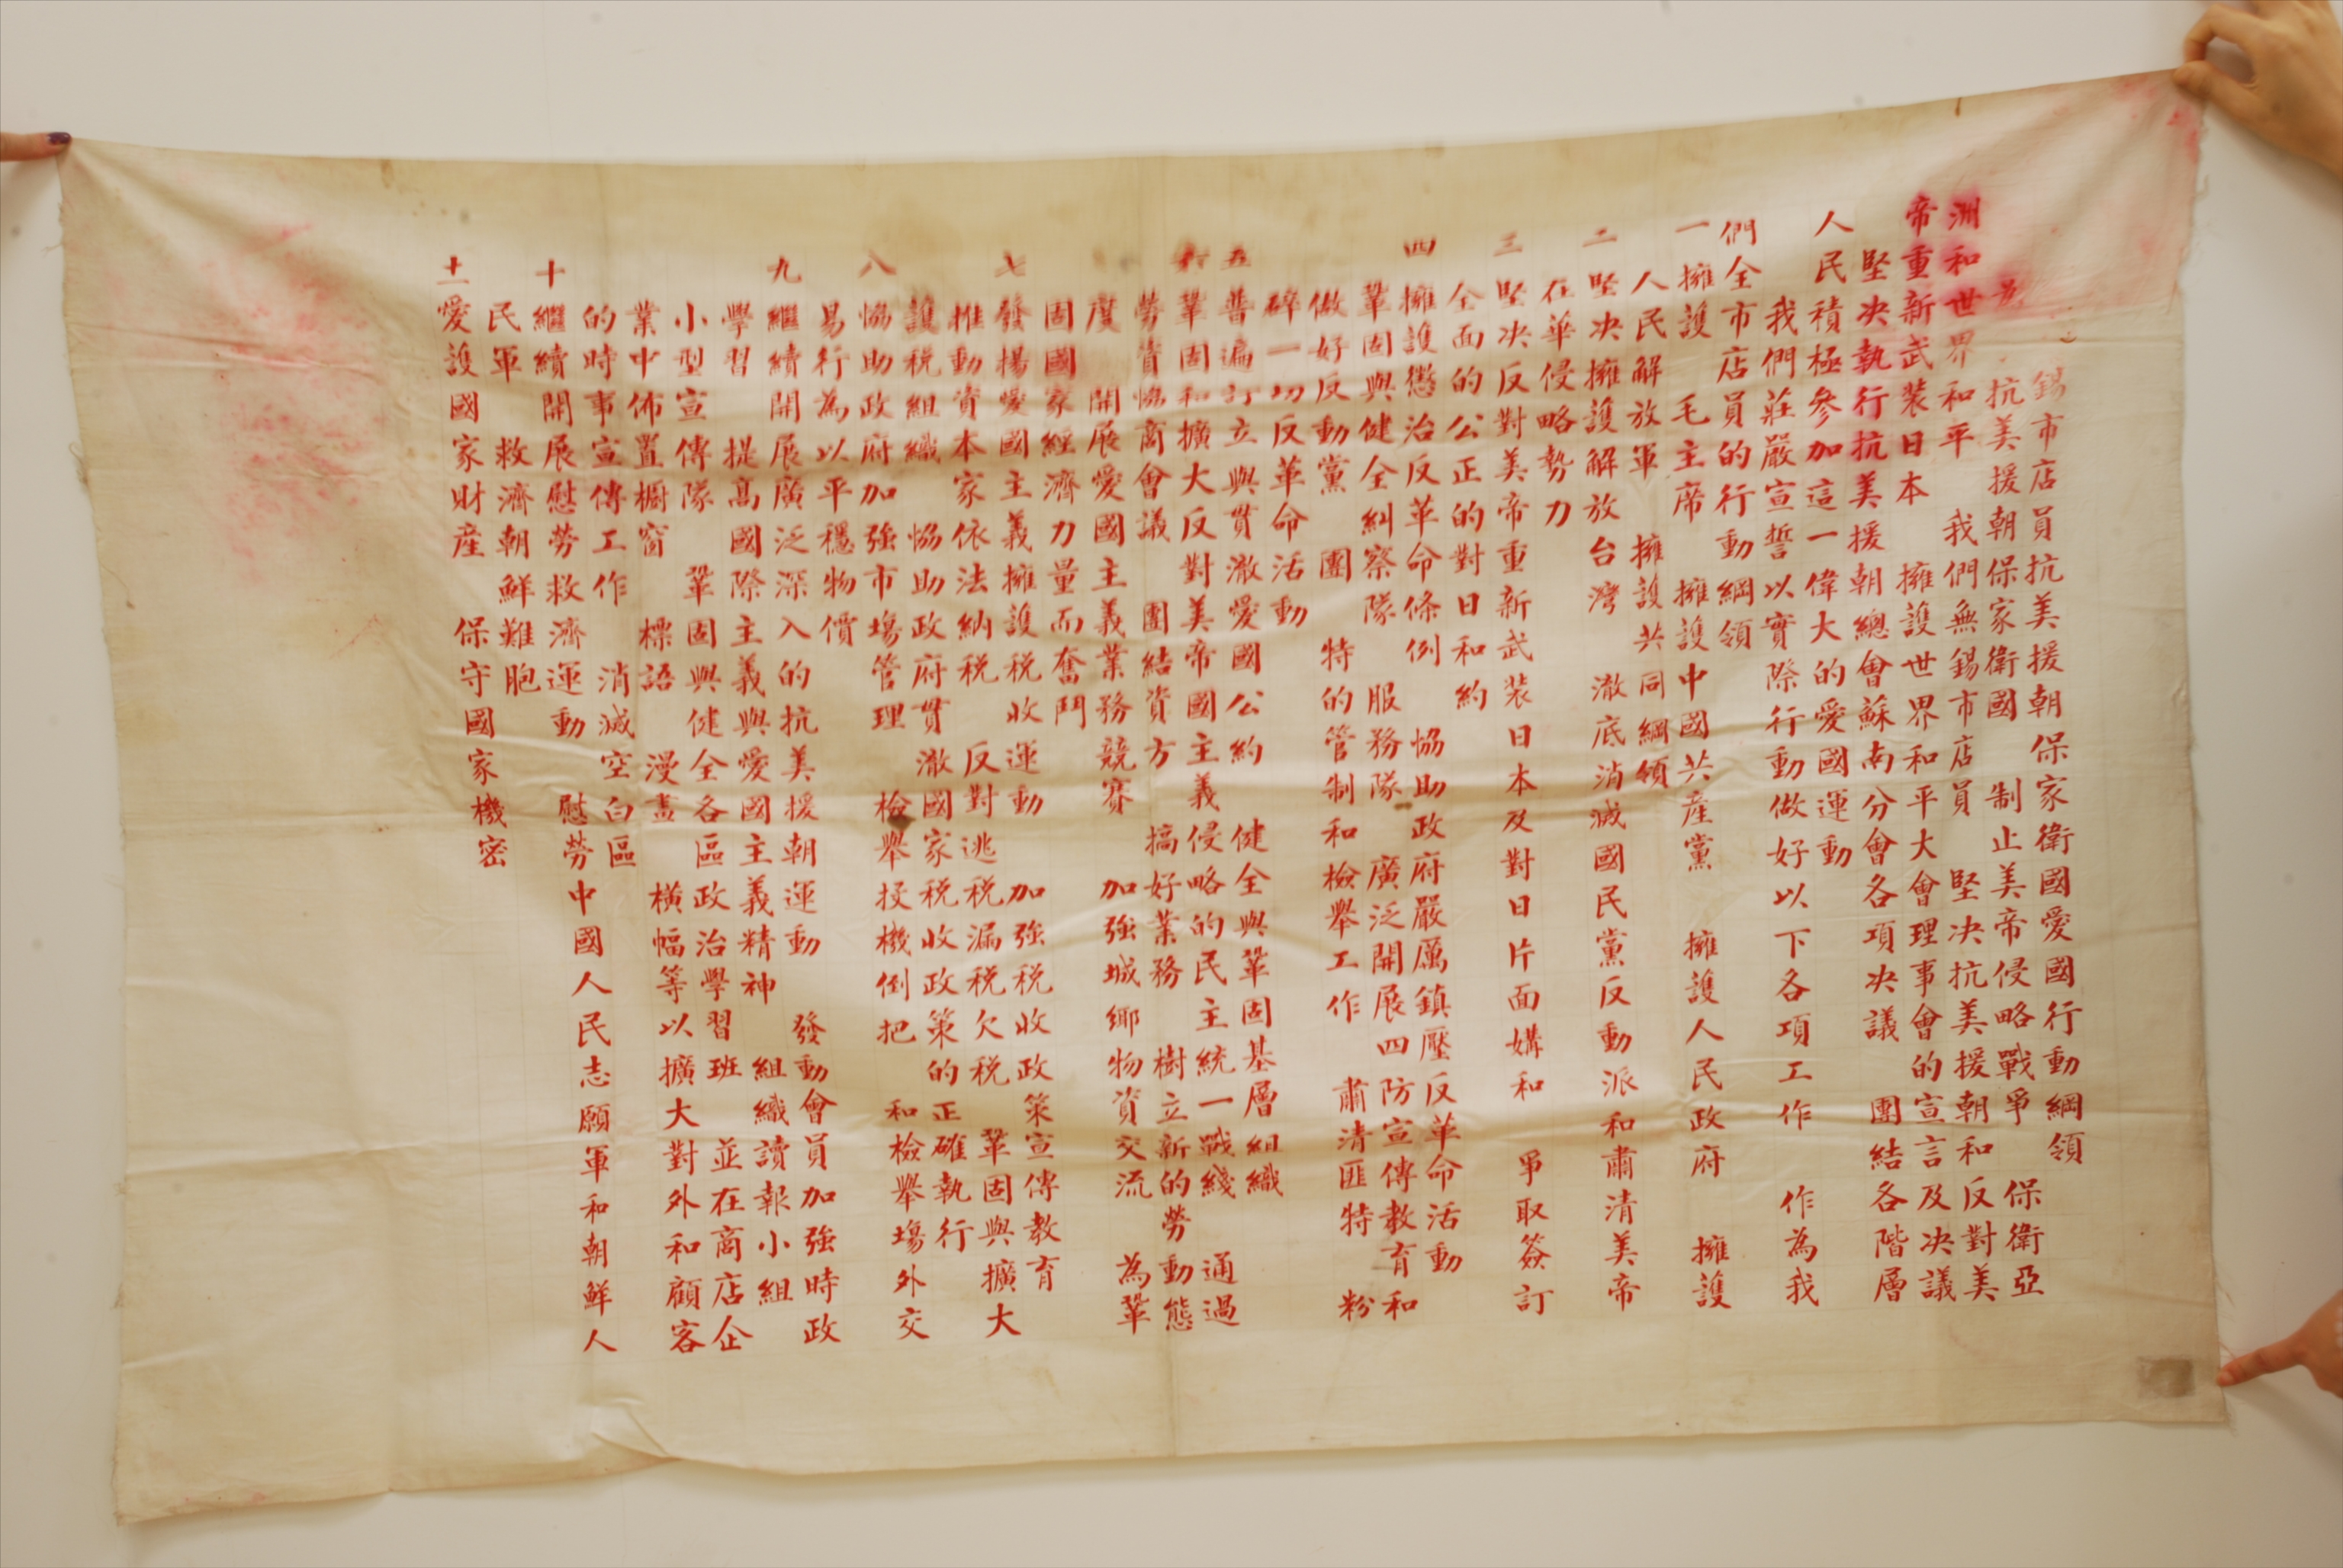 錫市店員抗美援朝保家衛國愛國行動綱領
為 抗美援朝保家衛國 制止美帝侵略戰爭 保衛亞
洲和世界和平 我們無錫市店員 堅决抗美援朝和反對美
帝重新武装日本 擁護世界和平大會理事會的宣言及决議
堅决執行抗美援朝總會蘇南分會各項决議 團結各階層
人民積極參加這一偉大的愛國運動
我們莊嚴宣誓以實際行動做好以下各項工作 作為我
們全市店員的行動綱領
一 擁護 毛主席 擁護中國共産黨 擁護人民政府 擁護
人民解放軍 擁護共同綱領
二 堅决擁護解放台灣 澈底消滅國民黨反動派和肅清美帝
在華侵略勢力
三 堅决反對美帝重新武装日本及對日片面媾和 爭取簽訂
全面的公正的對日和約
四 擁護懲治反革命條例 協助政府嚴厲鎮壓反革命活動
鞏固與健全糾察隊 服務隊 廣泛開展四防宣傳教育和
做好反動黨 團 特的管制和檢舉工作 肅清匪特 粉
碎一切反革命活動
五 普遍訂立與貫澈愛國公約 健全與鞏固基層組織
六 鞏固和擴大反對美帝國主義侵略的民主統一戰綫 通過
勞資協商會議 團結資方 搞好業務 樹立新的勞動態
度 開展愛國主義業務競賽 加強城鄉物資交流 為鞏
固國家經濟力量而奮鬥
七 發揚愛國主義擁護税收運動 加強税收政策宣傳教育
推動資本家依法納税 反對逃税漏税欠税 鞏固與擴大
護税組織 協助政府貫澈國家税收政策的正確執行
八 協助政府加強市場管理 檢舉投機倒把 和檢舉場外交
易行為以平穩物價
九 繼續開展廣泛深入的抗美援朝運動 發動會員加強時政
學習 提高國際主義與愛國主義精神 組織讀報小組
小型宣傳隊 鞏固與健全各區政治學習班 並在商店企
業中佈置櫥窗 標語 漫畫 橫幅等以擴大對外和顧客
的時事宣傳工作 消滅空白區
十 繼續開展慰勞救濟運動 慰勞中國人民志願軍和朝鮮人
民軍 救濟朝鮮難胞
十一 愛護國家財産 保守國家機密